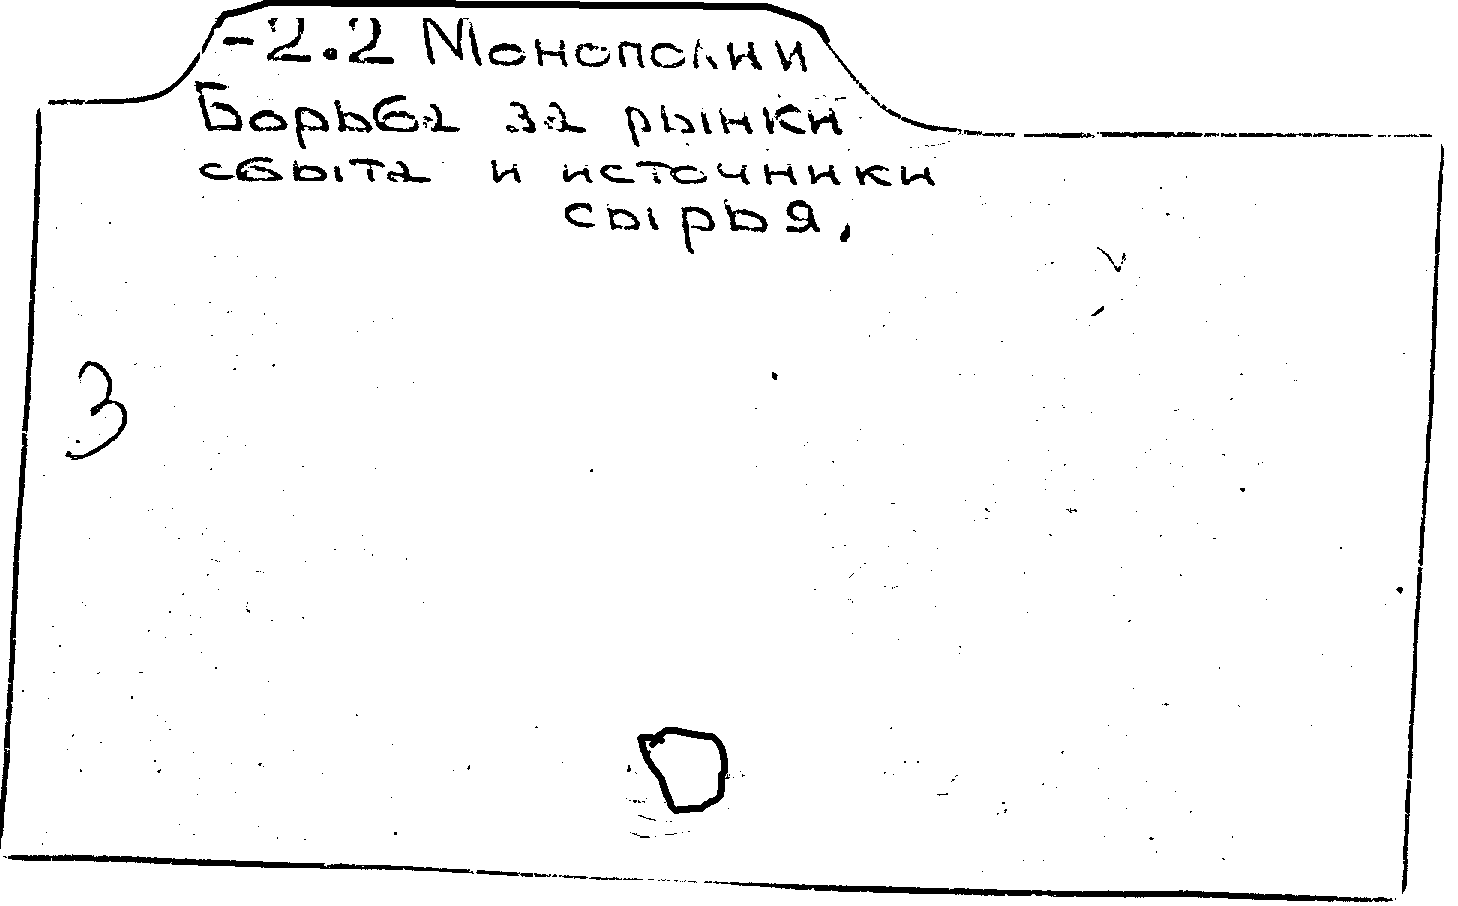 -2.2 Монополии
Борьба за рынки
сбыта и источники
сырья.
3